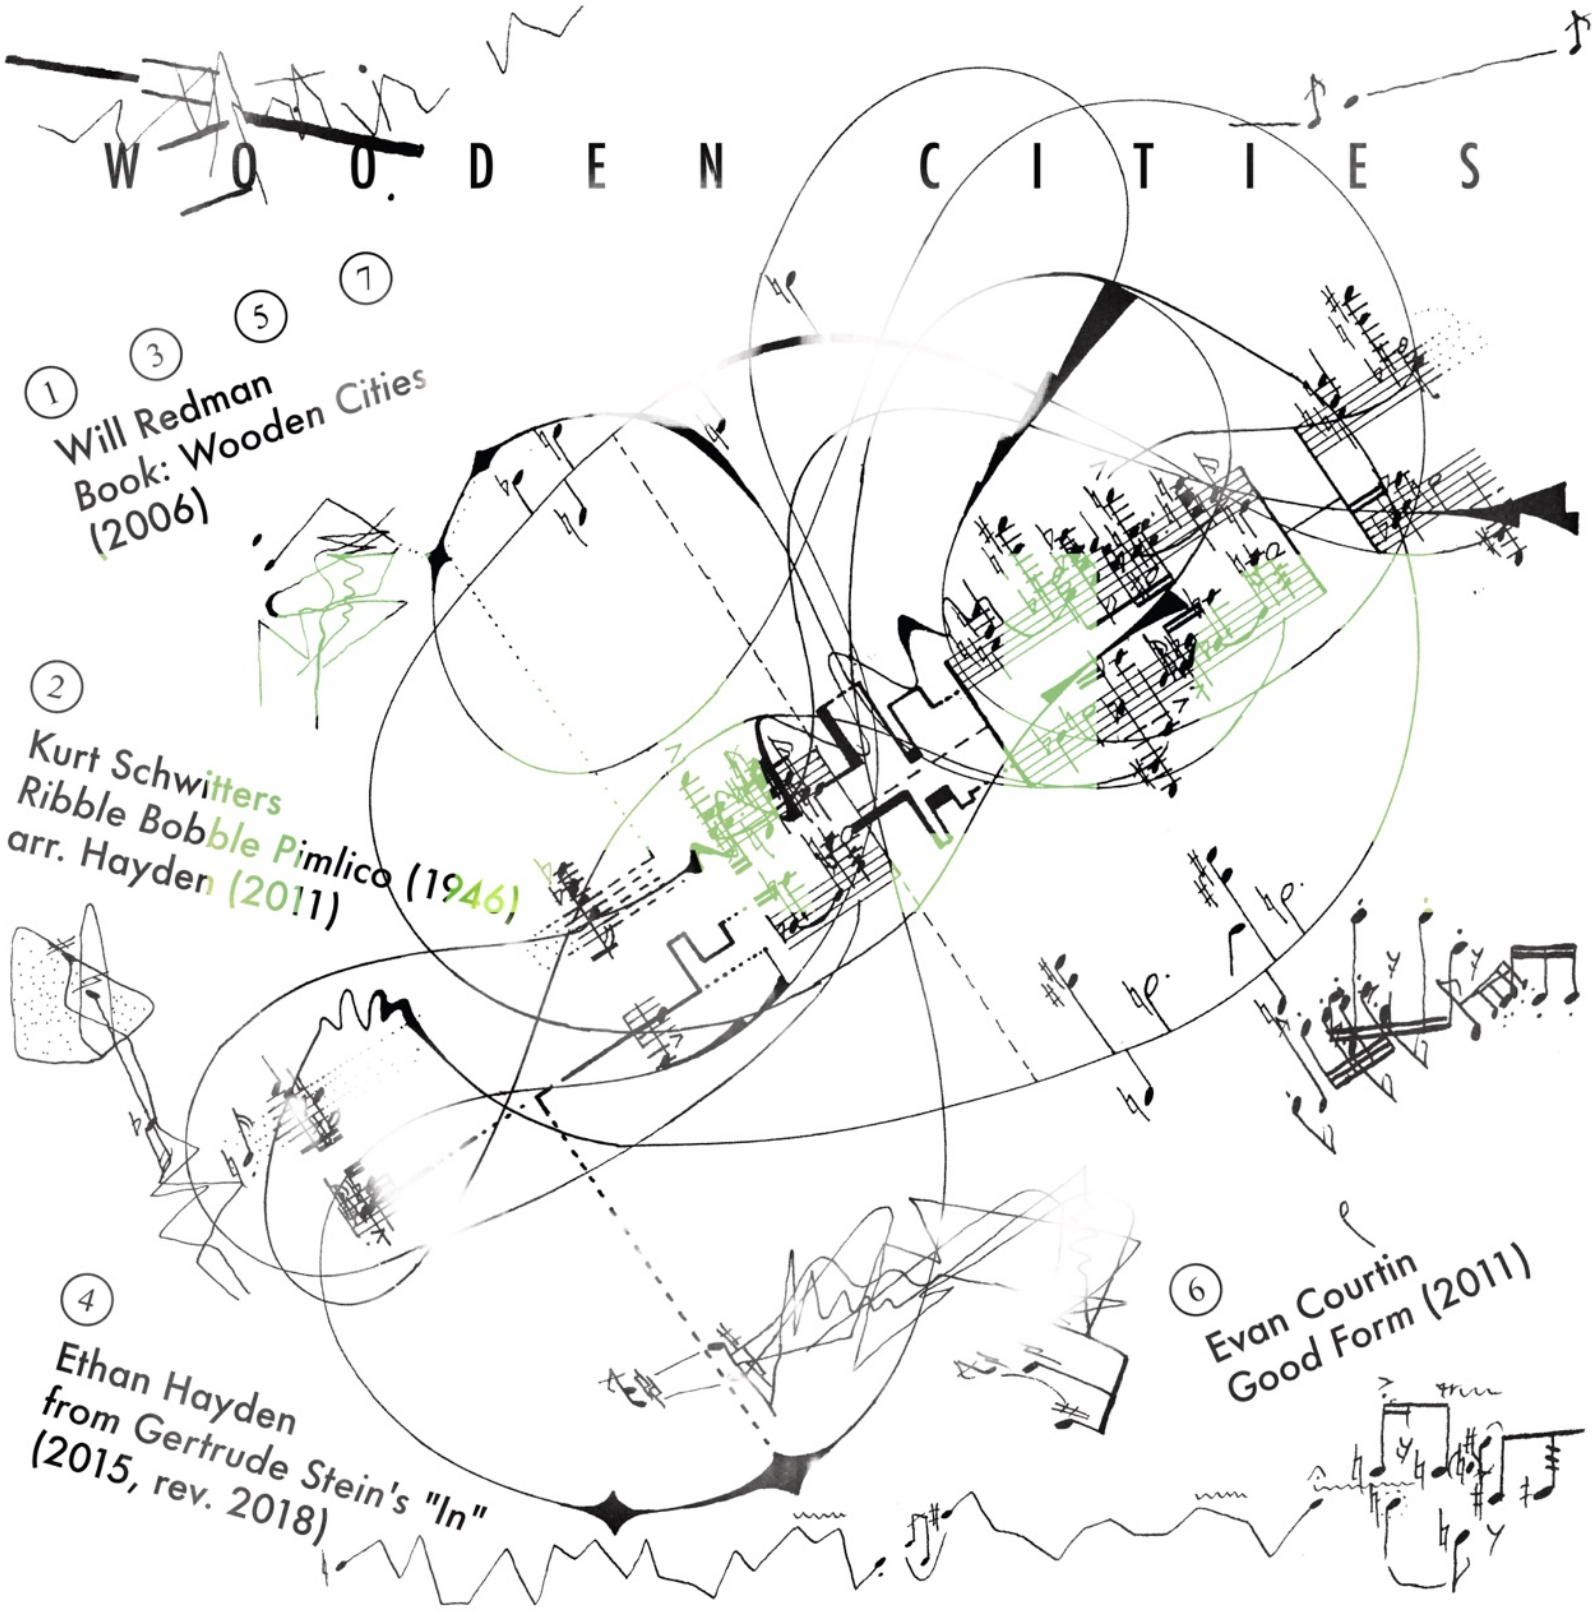 WOODEN CITIES
1 3 5 7
Will Redman
Book: Wooden Cities
(2006)
2
Kurt Schwitters
Ribble Bobble Pimlico (1946)
arr. Hayden (2011)
4
Ethan Hayden
from Gertrude Stein's "In"
(2015, rev. 2018)
6
Evan Courtin
Good Form (2011)